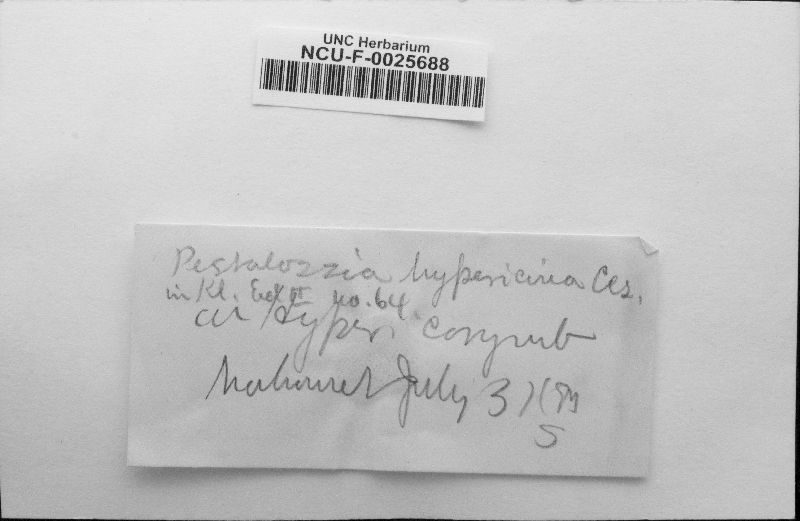 UNC Herbarium
NCU-F-0025688
Pestalozzia hypericina Ces.
in Kl. Exs II no. 64
on Hyperi corymb
Mahomet July 3
S